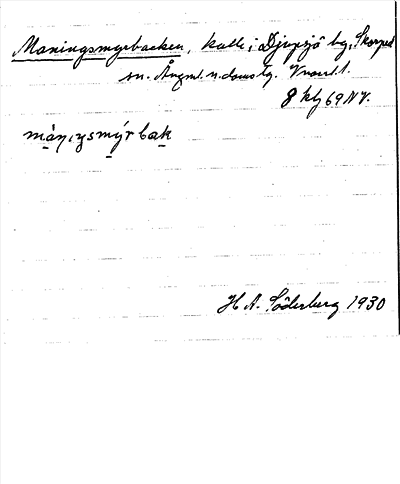 Maningsmyrbacken, kulle i Djupsjö by, Skorped
sn. Ångml. n. doms
8 kbl 69 NV.
màṇıŋsmýrbak
H A. Söderberg 1930